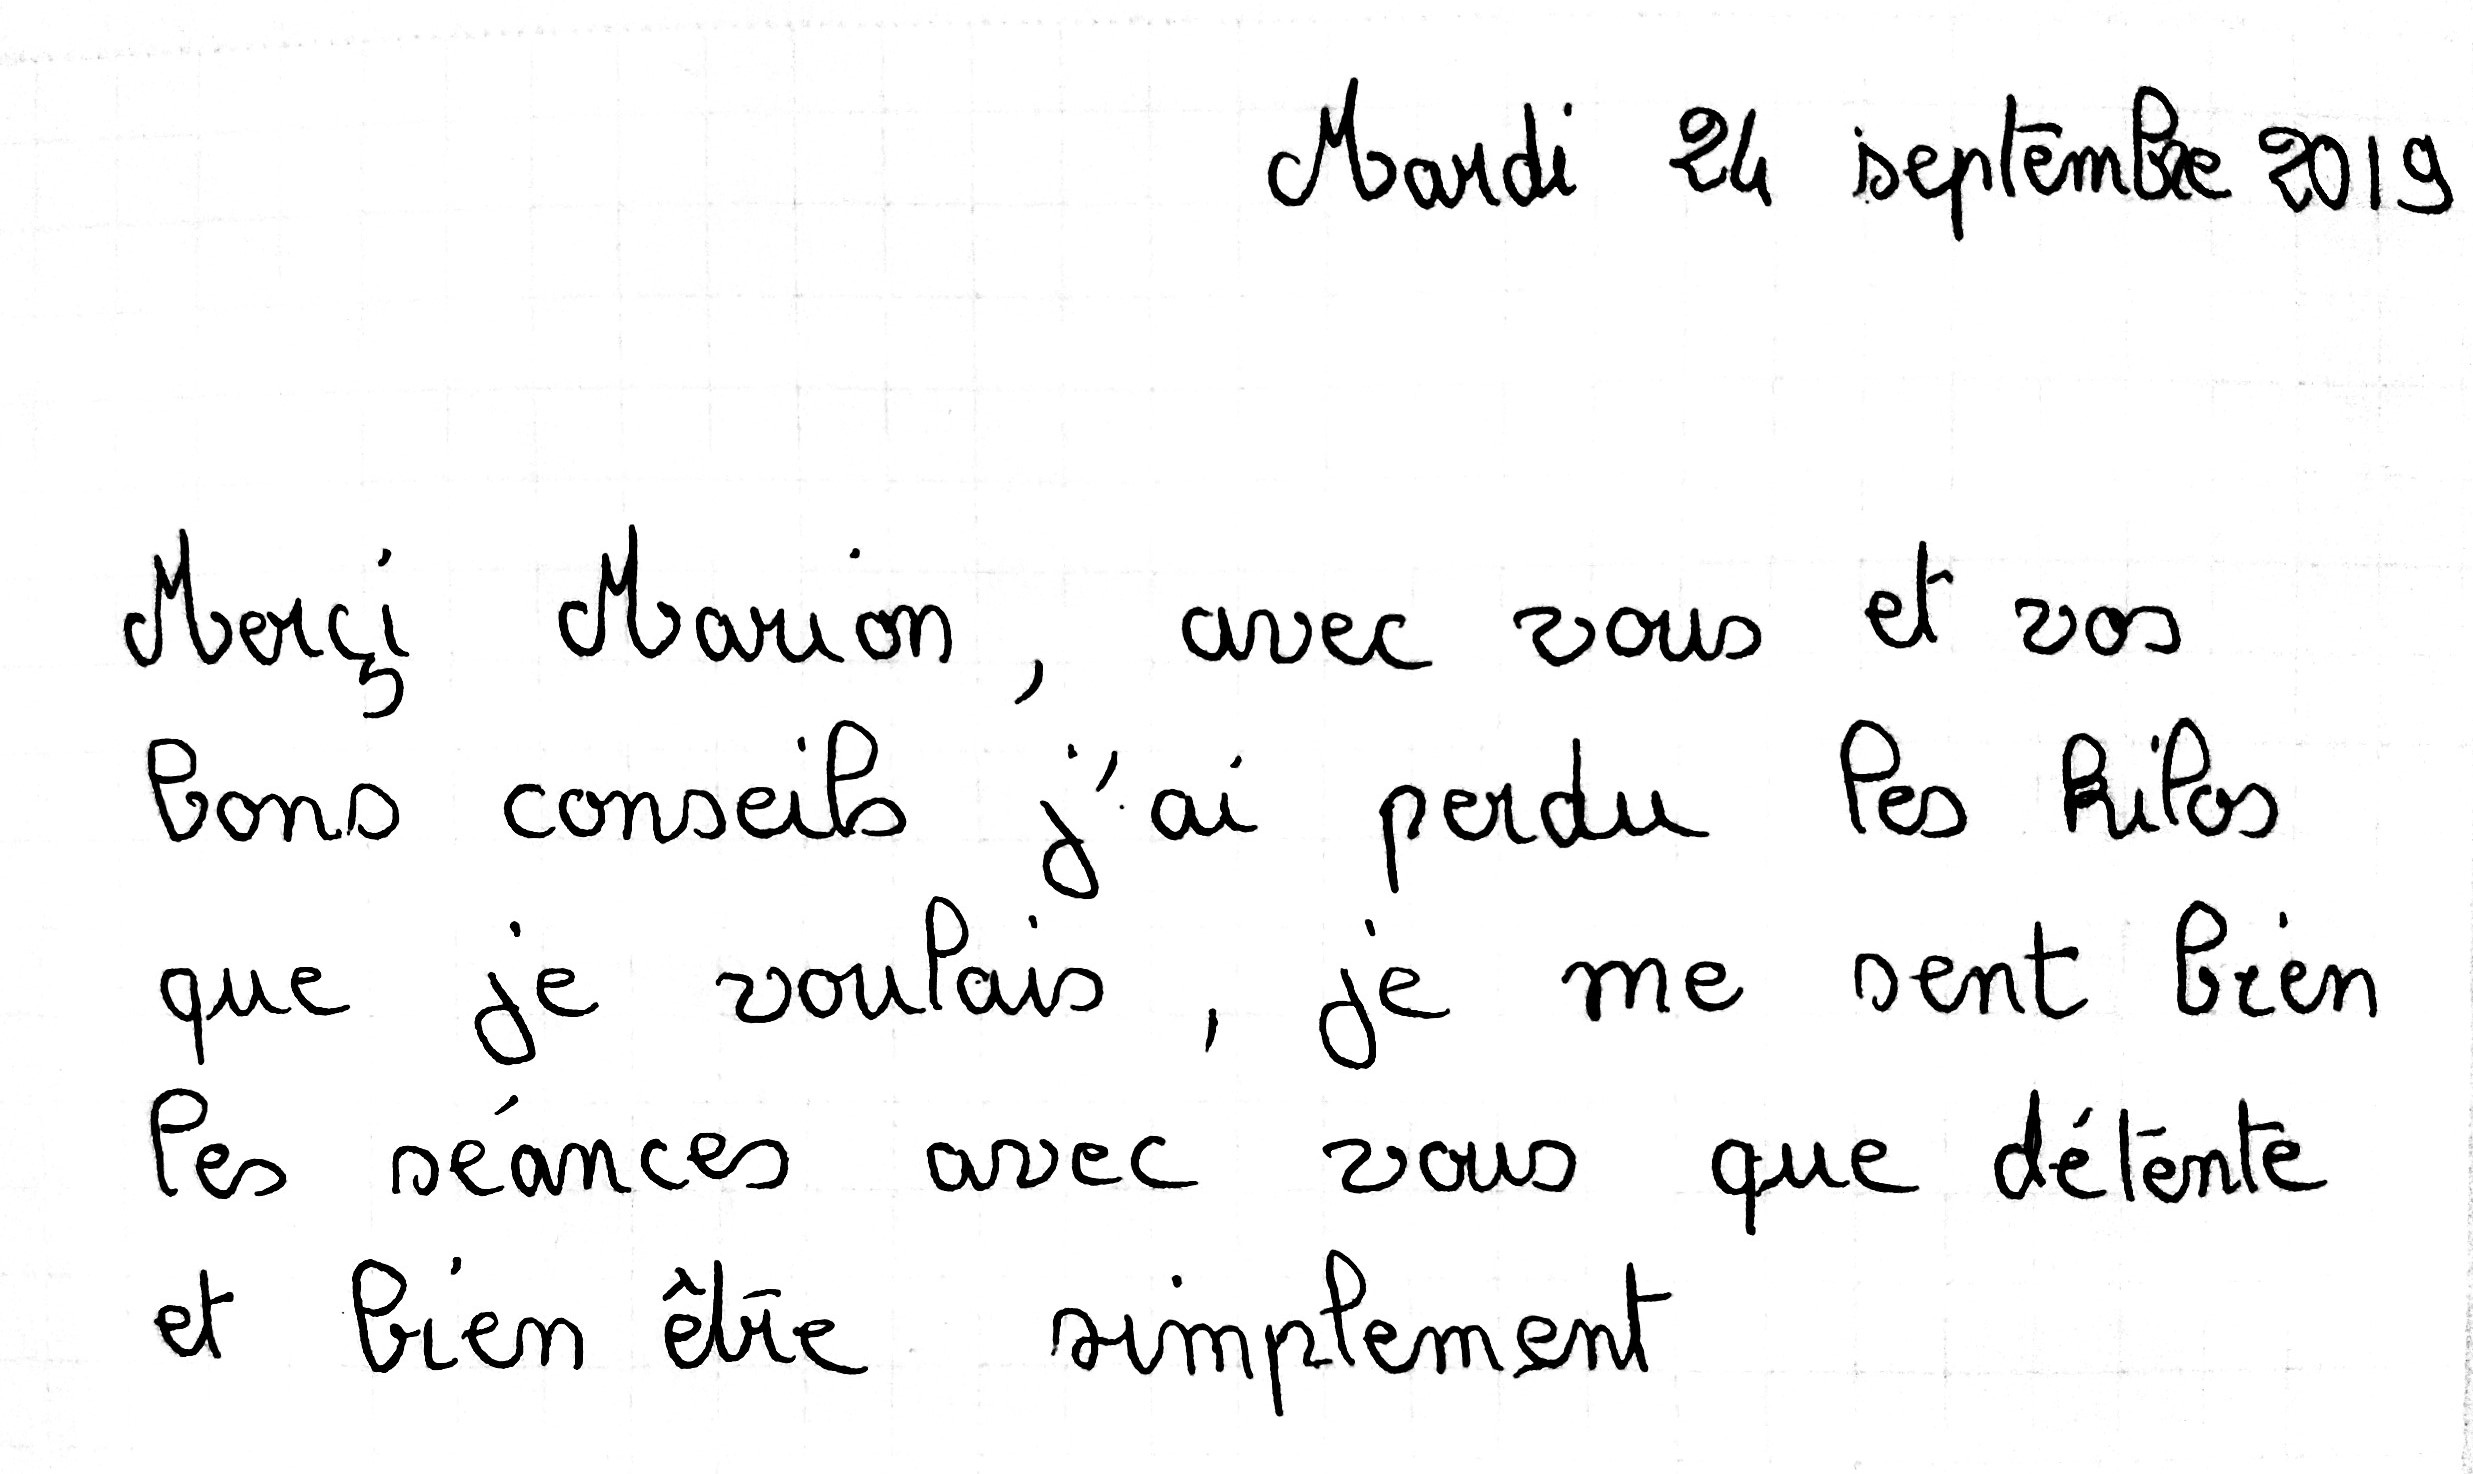 Mardi 24 septembre 2019
Merçi Marion, avec vous et vos
bons conseils j'ai perdu les kilos
que je voulais, je me sent bien
les séances avec vous que détente
et bien être simplement